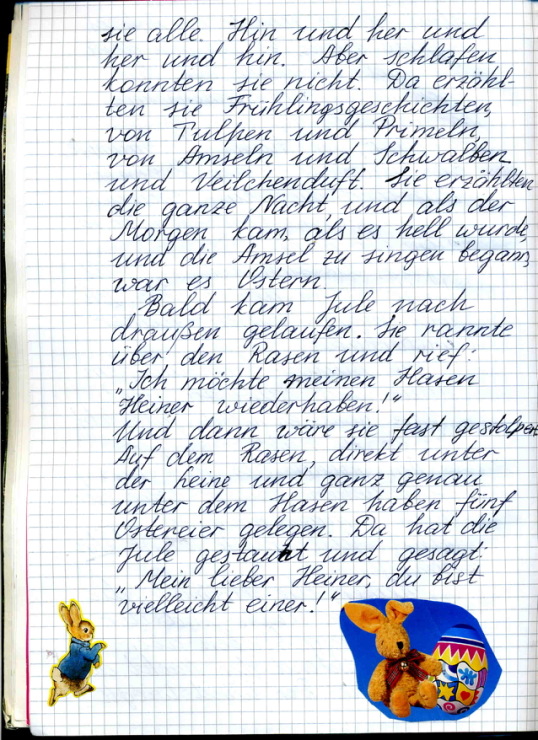 sie alle. Hin und her und
her und hin. Aber schlafen
konnten sie nicht. Da erzähl-
ten sie Frühlingsgeschichten,
von Tulpen und Primeln,
von Amseln und Schwalben
und Veilchenduft. Sie erzählten
die ganze Nacht, und als der
Morgen kam, als es hell wurde,
und die Amsel zu singen begann,
war es Ostern.
Bald kam Jule nach
draußen gelaufen. Sie rannte
über den Rasen und rief:
„Ich möchte meinen Hasen
Heiner wiederhaben!“
Und dann wäre sie fast gestolpert
Auf dem Rasen, direkt unter
der heine und ganz genau
unter dem Hasen haben fünf
Ostereier gelegen. Da hat die
Jule gestaunt und gesagt:
„Mein lieber Heiner, du bist
vielleicht einer!“